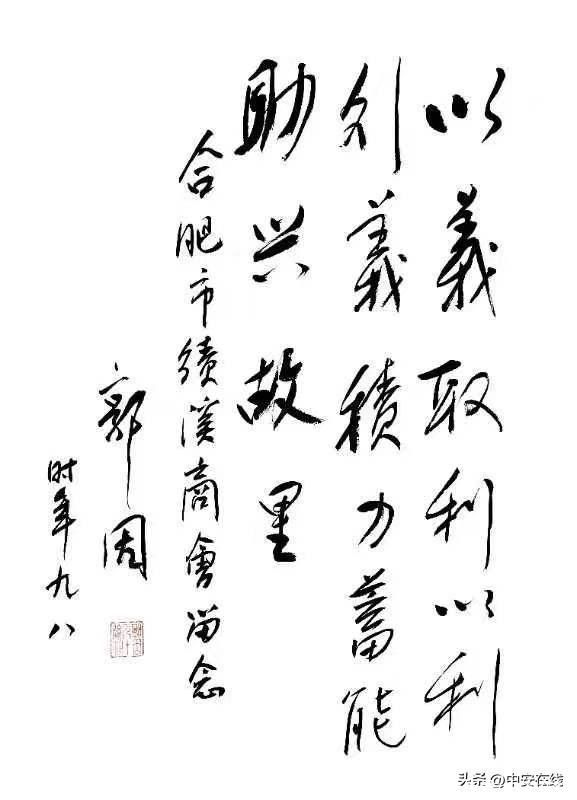 以義取利以利
義積力蓄能
助兴故里
合肥市績溪商會留念
郭因
时年九八
头条 @中安在线